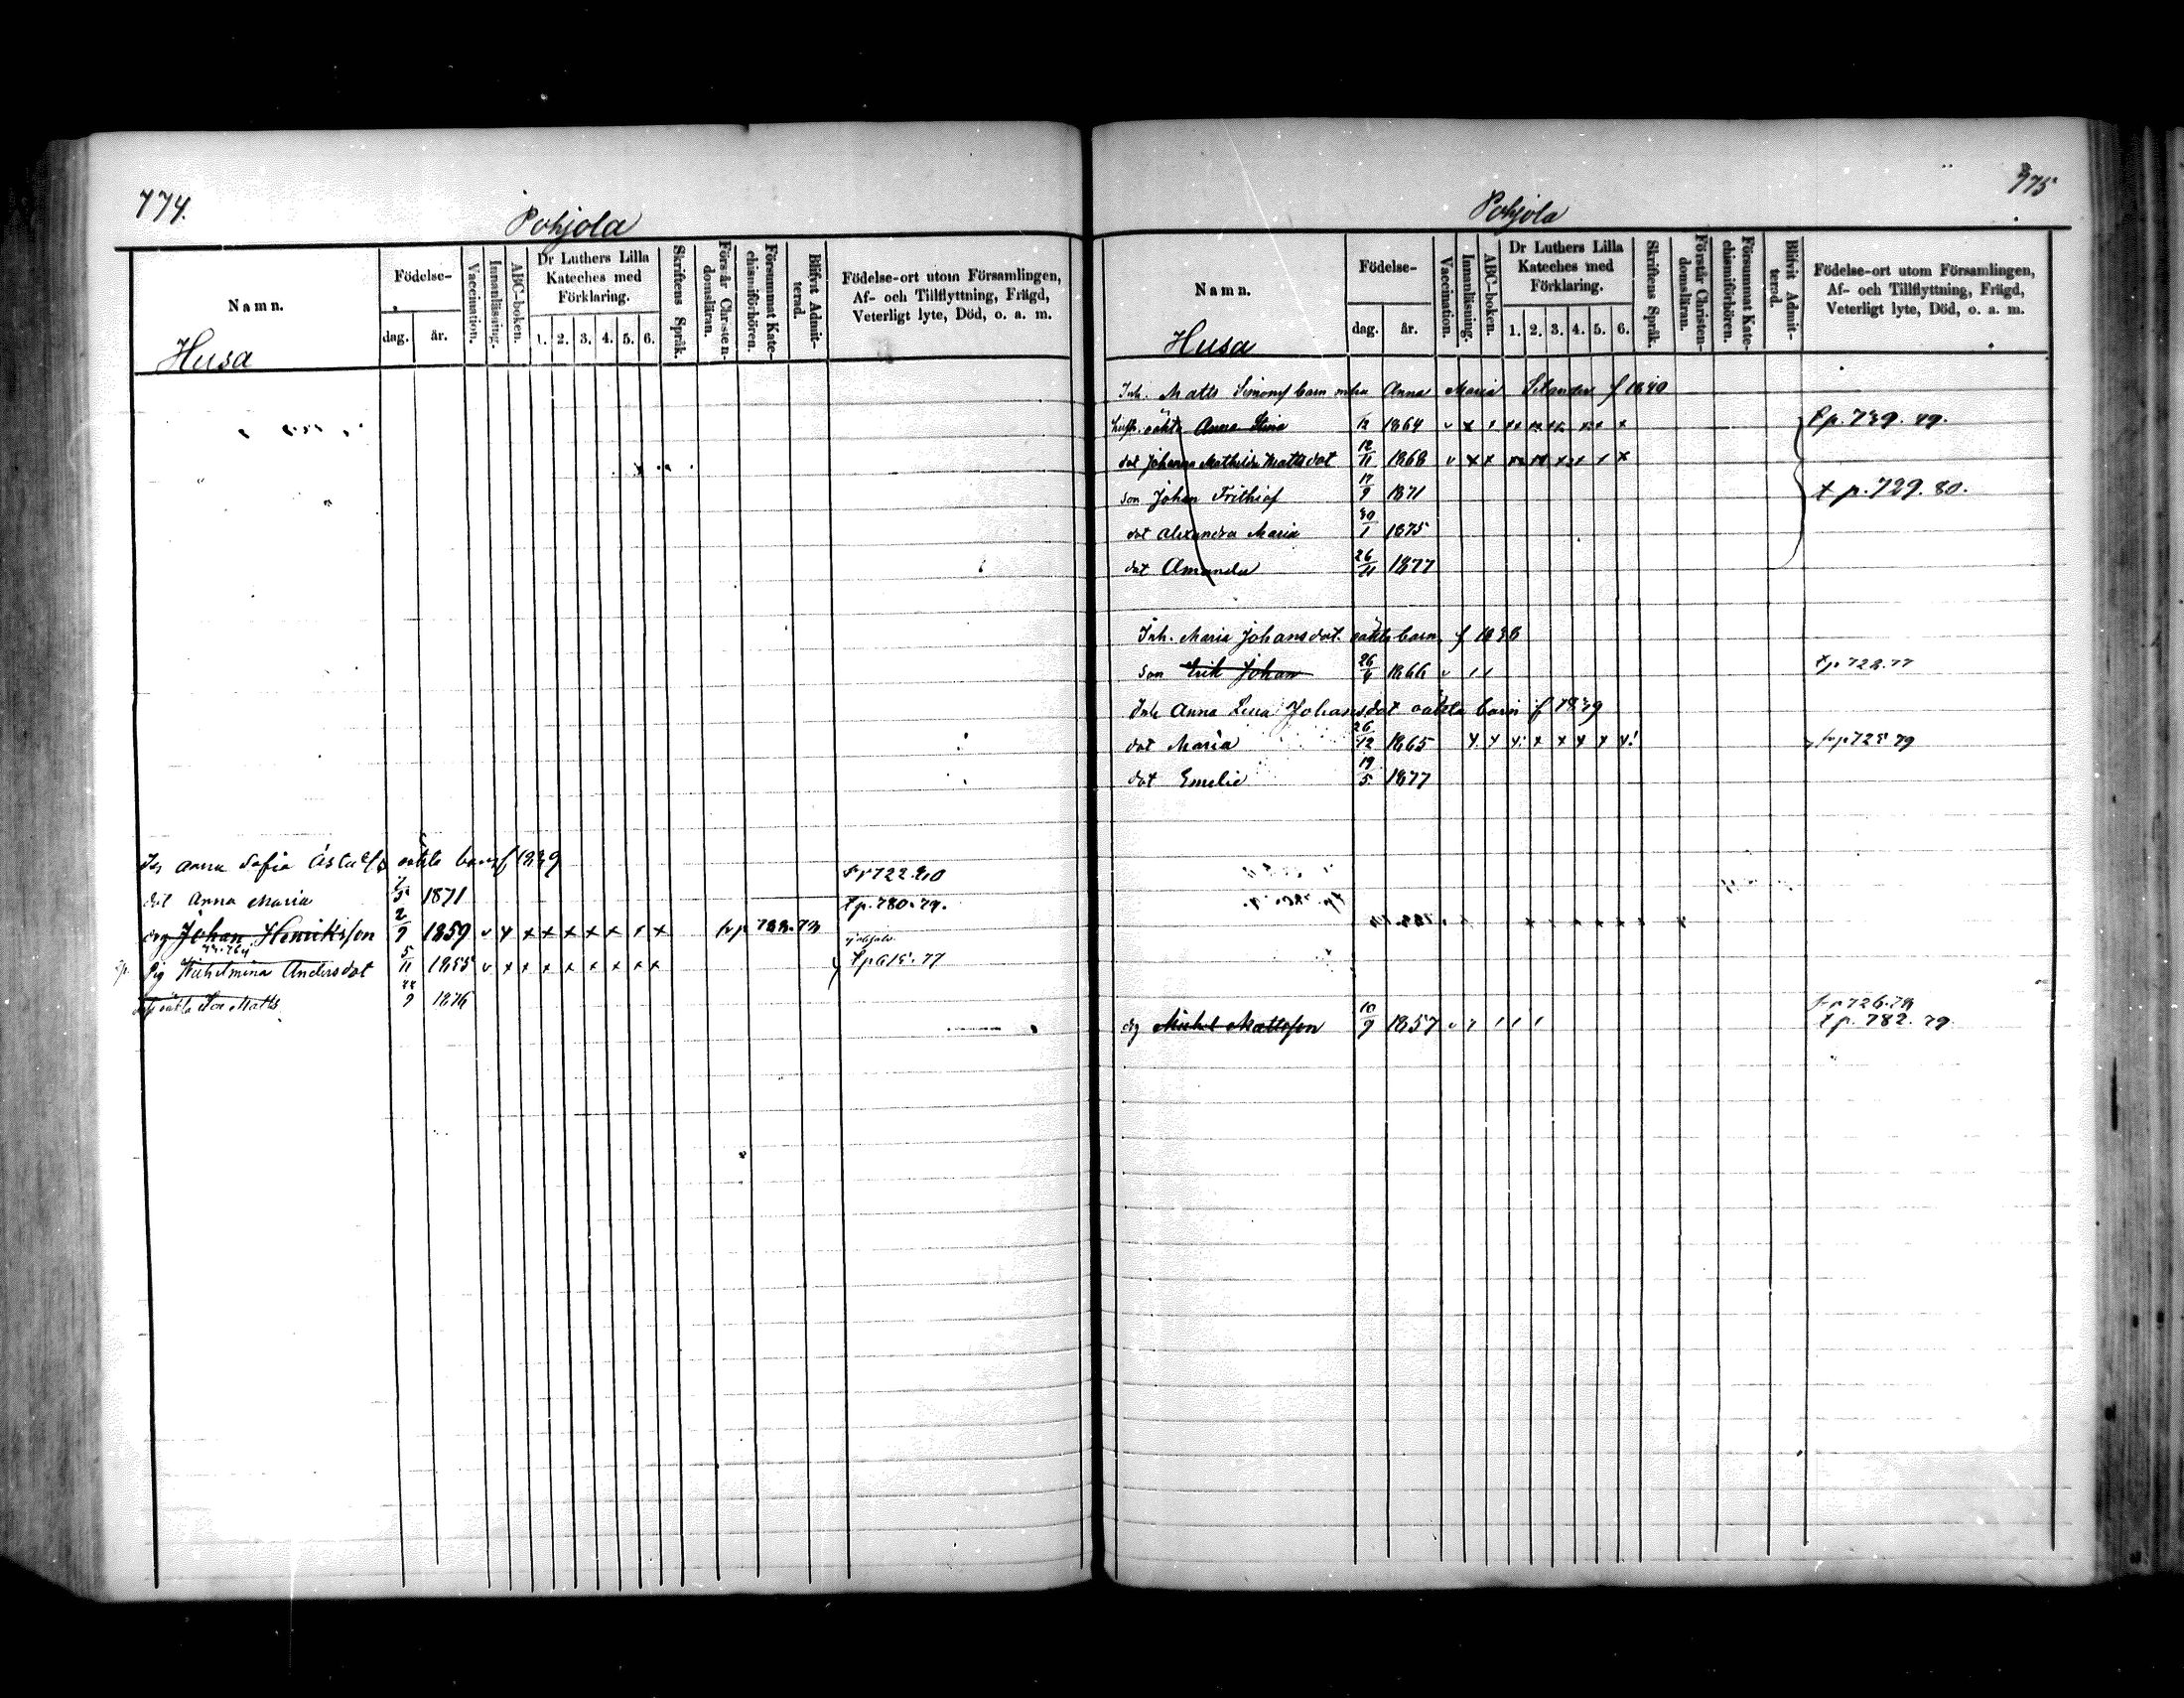 774.
Pohjola
Namn.
Födelse-
dag.
år.
Vaccination.
Innanläsning.
ABC-boken.
Dr Luthers Lilla
Kateches med
Förklaring.
1. 2. 3. 4. 5. 6.
Skriftens Språk.
Förstår Christen-
domsläran.
Försummat Kate-
chismiförhören.
Blifvit Admit-
terad.
Födelse-ort utom Församlingen,
Af- och Tillflyttning, Frägd,
Veterligt lyte, Död, o. a. m.
Husa
Anna Sofia oäkta barn f 1839
dot Anna Maria 1871 tp. 780. 79.
drg Johan Henriksson 2/9 1859 v y x x x x x x
pig Wilhelmina Andersdot 5/11 1855 v x x x x x x x tp 615. 77
oäkta son Matts 9 1876
775
Pohjola
Namn.
Födelse-
dag.
år.
Vaccination.
Innanläsning.
ABC-boken.
Dr Luthers Lilla
Kateches med
Förklaring.
1. 2. 3. 4. 5. 6.
Skriftens Språk.
Förstår Christen-
domsläran.
Försummat Kate-
chismiförhören.
Blifvit Admit-
terad.
Födelse-ort utom Församlingen,
Af- och Tillflyttning, Frägd,
Veterligt lyte, Död, o. a. m.
Husa
Inh. Matts Simons barn Anna Maria f 1840
oäkta Anna Stina 12 1864
dot Johanna Mathilda Mattsdot 12/11 1868
son Johan Frithiof 17/9 1871 t p. 729. 80.
dot Alexandra Maria 30/1 1875
dot Amanda 26/11 1877
Inh. Maria Johansdot oäkta barn f 1838
son Erik Johan 26 1866
Inh Anna Lena Johansdot oäkta barn f 1839
dot Maria 26/12 1865
dot Emelie 19/5 1877
fr p 726. 78
drg Michel Mattsson 10/9 1857 t p. 782. 79.